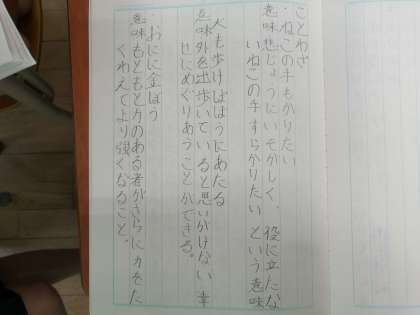 ことわざ
・ねこの手もかりたい
意味 ひじょうにいそがしく、役に立たな
いねこの手すらかりたいという意味
犬も歩けばぼうにあたる
意味 外を出歩いていると思いがけない幸
せにめぐりあうことができる。
おにに金ぼう
意味 もともと力のある者がさらに力をた
くわえてより強くなること。